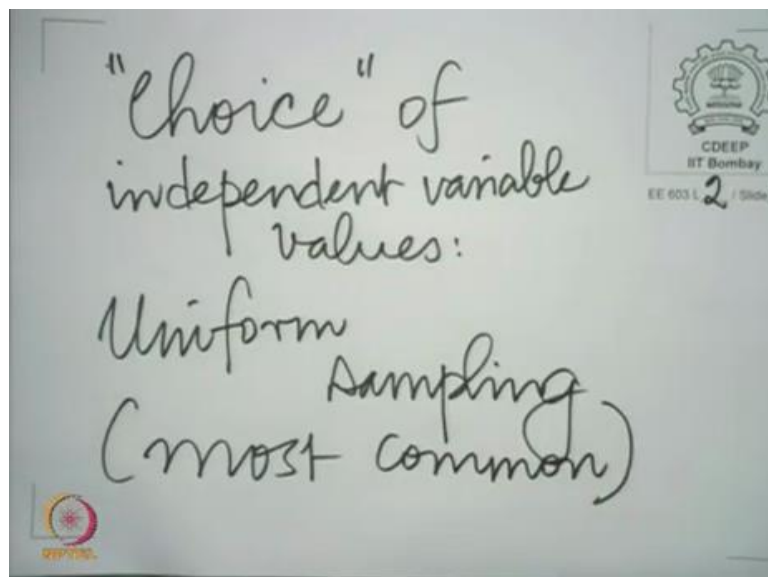 "Choice" of
independent variable
values:
Uniform
sampling
(most common)
CDEEP
IIT Bombay
EE 603 L 2 / Slide